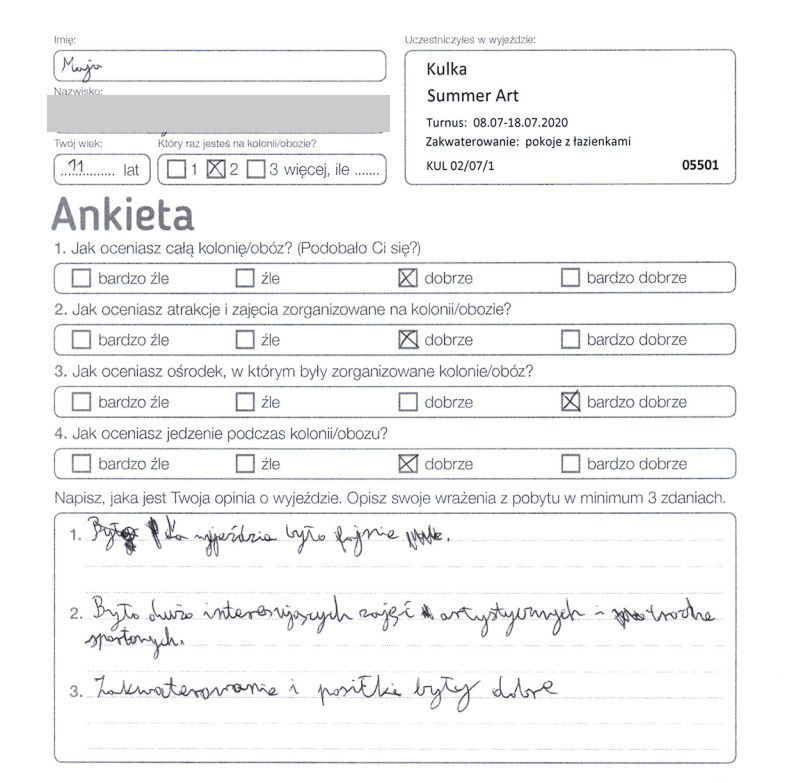 Imię:
Maja
Nazwisko:
Twój wiek:
11 lat
Który raz jesteś na kolonii/obozie?
1 2 3 więcej, ile .......
Uczestniczyłeś w wyjeździe:
Kulka
Summer Art
Turnus: 08.07-18.07.2020
Zakwaterowanie: pokoje z łazienkami
KUL 02/07/1 05501
Ankieta
1. Jak oceniasz całą kolonię/obóz? (Podobało Ci się?)
bardzo źle źle dobrze bardzo dobrze
2. Jak oceniasz atrakcje i zajęcia zorganizowane na kolonii/obozie?
bardzo źle źle dobrze bardzo dobrze
3. Jak oceniasz ośrodek, w którym były zorganizowane kolonie/obóz?
bardzo źle źle dobrze bardzo dobrze
4. Jak oceniasz jedzenie podczas kolonii/obozu?
bardzo źle źle dobrze bardzo dobrze
Napisz, jaka jest Twoja opinia o wyjeździe. Opisz swoje wrażenia z pobytu w minimum 3 zdaniach.
1. wyjeździe było fajnie .
2. Było dużo interesujących zajęć artystycznych i troche
sportowych.
3. Zakwaterowanie i posiłki były dobre